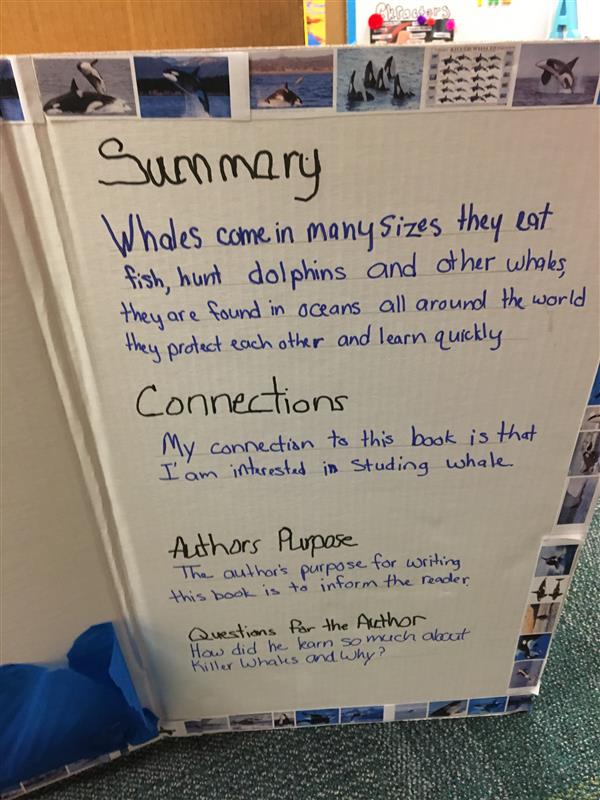 Characters
THE
A
KILLER WHALES
Summary
Whales come in many sizes they eat
fish, hunt dolphins and other whales,
they are found in oceans all around the world
they protect each other and learn quickly
Connections
My connection to this book is that
I'am interested in Studing whale.
Authors Purpose
The author's purpose for writing
this book is to inform the reader.
Questions for the Author
How did he learn so much about
Killer Whales and why?